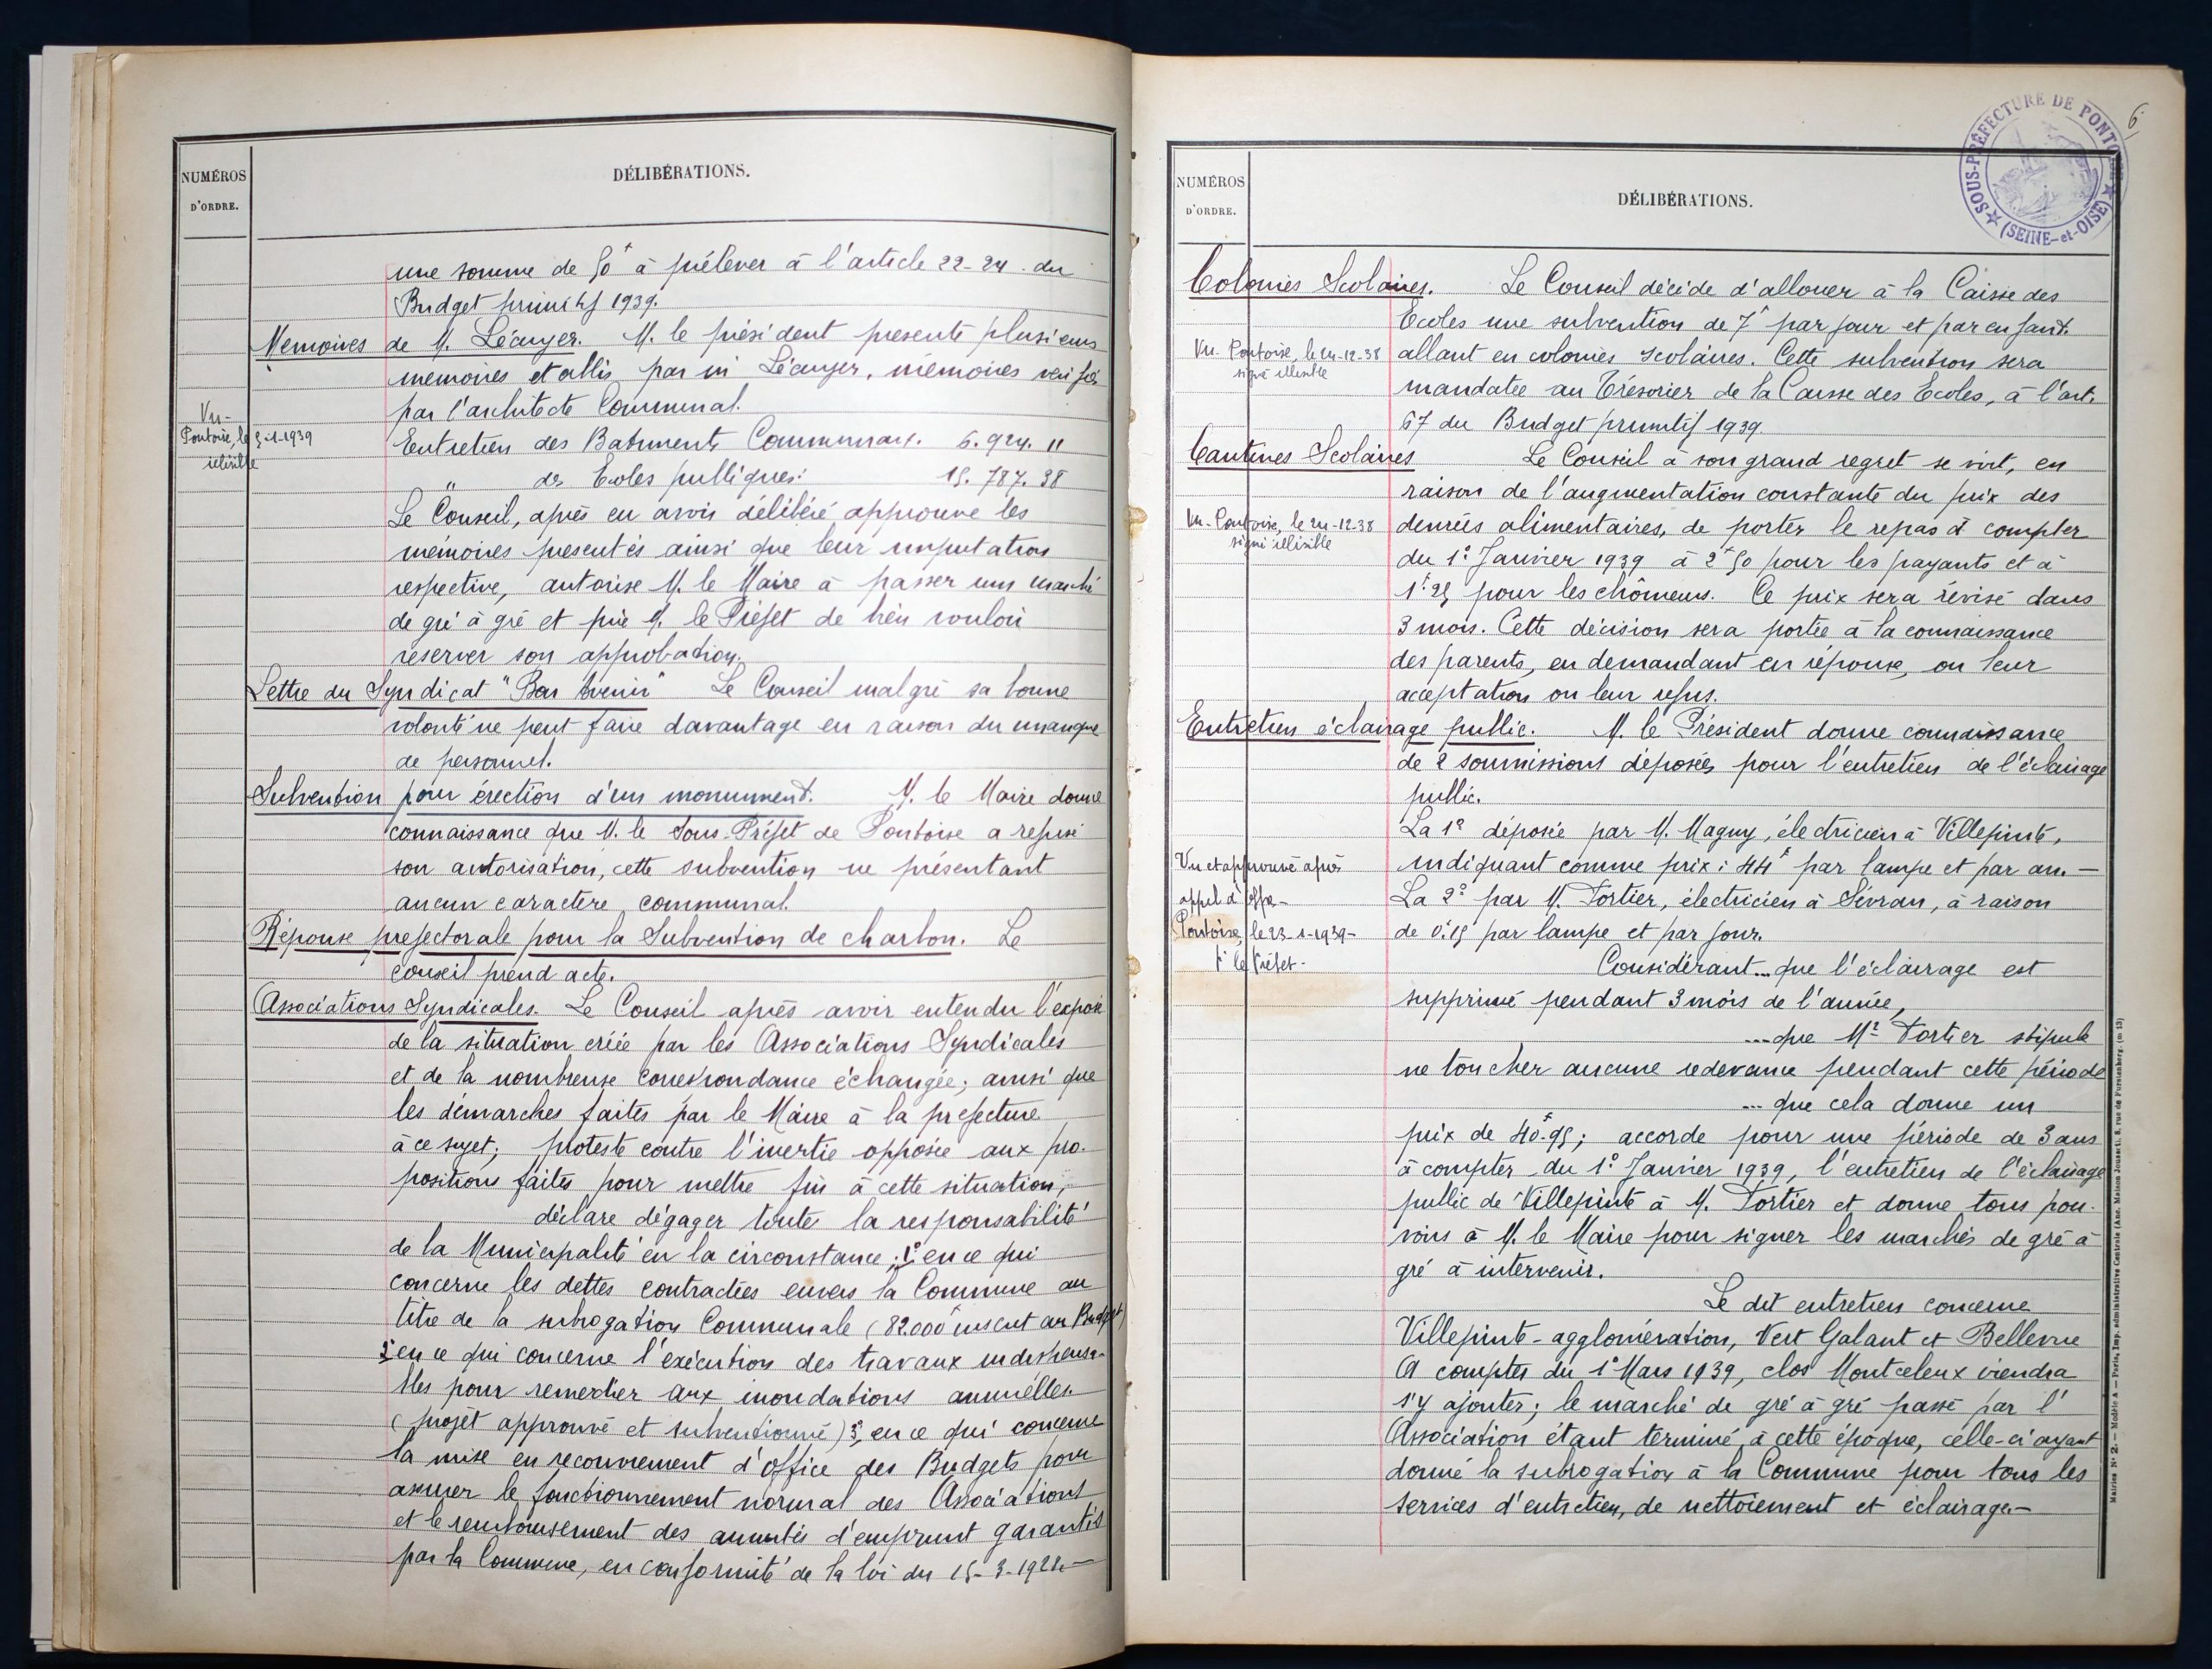 NUMÉROS
D'ORDRE.
DÉLIBÉRATIONS.
une somme de 50f à prélever à l'article 22-24 du
Budget primitif 1939.
Memoires de M. Lécuyer. M. le président presente plusieurs
memoires etablis par m Lécuyer, mémoires verifiés
par l'architecte Communal.
Vu-
Pontoise, le 3-1-1939
illisible
Entretien des Batiments Communaux. 6.924.11
" des Ecoles publiques: 15.787.38
Le Conseil, après en avoir délibéré approuve les
mémoires presentés ainsi que leur imputation
respective, autorise M. le Maire à passer un marché
de gré à gré et prie M. le Préfet de bien vouloir
réserver son approbation.
Lettre du Syndicat "Bon Avenir" Le Conseil malgré sa bonne
volonté ne peut faire davantage en raison du manque
de personnel.
Subvention pour érection d'un monument. M. le Maire donne
connaissance que M. le Sous-Préfet de Pontoise a refusé
son autorisation, cette subvention ne présentant
aucun caractère communal.
Réponse prefectorale pour la Subvention de charbon. Le
conseil prend acte.
Associations Syndicales. Le Conseil après avoir entendu l'exposé
de la situation créée par les Associations Syndicales
et de la nombreuse correspondance échangée; ainsi que
les démarches faites par le Maire à la prefecture
à ce sujet; proteste contre l'inertie opposée aux pro-
positions faites pour mettre fin à cette situation;
déclare dégager toute la responsabilité
de la Municipalité en la circonstance; 1° en ce qui
concerne les dettes contractées envers la Commune au
titre de la subrogation Communale (82.000f inscrit au Budget)
2° en ce qui concerne l'exécution des travaux indispensa-
bles pour remedier aux inondations annuelles.
(projet approuvé et subventionné) 3° en ce qui concerne
la mise en recouvrement d'office des Budgets pour
assurer le fonctionnement normal des Associations
et le remboursement des annuités d'emprunt garantis
par la Commune, en conformité de la loi du 15-3-1928.-
6
SOUS-PRÉFECTURE DE PONTOISE
(SEINE-et-OISE)
NUMÉROS
D'ORDRE.
DÉLIBÉRATIONS.
Colonies Scolaires. Le Conseil décide d'allouer à la Caisse des
Ecoles une subvention de 7f par jour et par enfant
Vu. Pontoise, le 24-12-38
signé illisible
allant en colonies scolaires. Cette subvention sera
mandatée au Trésorier de la Caisse des Ecoles, à l'art.
67 du Budget primitif 1939.
Cantines Scolaires Le Conseil à son grand regret se voit, en
raison de l'augmentation constante du prix des
Vu. Pontoise, le 24-12-38
signé illisible
denrées alimentaires, de porter le repas à compter
du 1° Janvier 1939 à 2f50 pour les payants et à
1f25 pour les chômeurs. Ce prix sera révisé dans
3 mois. Cette décision sera portée à la connaissance
des parents, en demandant en réponse, ou leur
acceptation ou leur refus.
Entretien éclairage public. M. le Président donne connaissance
de 2 soumissions déposées pour l'entretien de l'éclairage
public.
La 1° déposée par M. Maguy, électricien à Villepinte,
Vu et approuvé après
appel d'offre-
Pontoise, le 23-1-1939-
P. le Préfet-
indiquant comme prix: 44f par lampe et par an.-
La 2° par M. Tortier, électricien à Sévran, à raison
de 0f15 par lampe et par jour.
Considérant... que l'éclairage est
supprimé pendant 3 mois de l'année,
... que Mr Tortier stipule
ne toucher aucune redevance pendant cette période
... que cela donne un
prix de 40f95; accorde pour une période de 3 ans
à compter du 1° Janvier 1939, l'entretien de l'éclairage
public de Villepinte à M. Tortier et donne tous pou-
voirs à M. le Maire pour signer les marchés de gré à
gré à intervenir.
Le dit entretien concerne
Villepinte-agglomération, Vert Galant et Bellevue
A compter du 1° Mars 1939, clos Montceleux viendra
s'y ajouter; le marché de gré à gré passé par l'
Association étant terminé à cette époque, celle-ci ayant
donné la subrogation à la Commune pour tous les
services d'entretien, de nettoiement et éclairage.-
Mairies N° 2. — Modèle A — Paris, Imp. administrative Centrale (Anc. Maison Jousset), 8, rue de Furstenberg. (m 13)